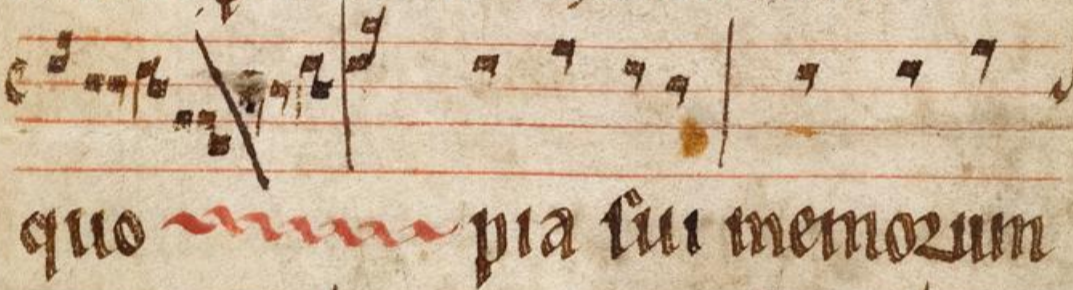 quo pia sui memorum